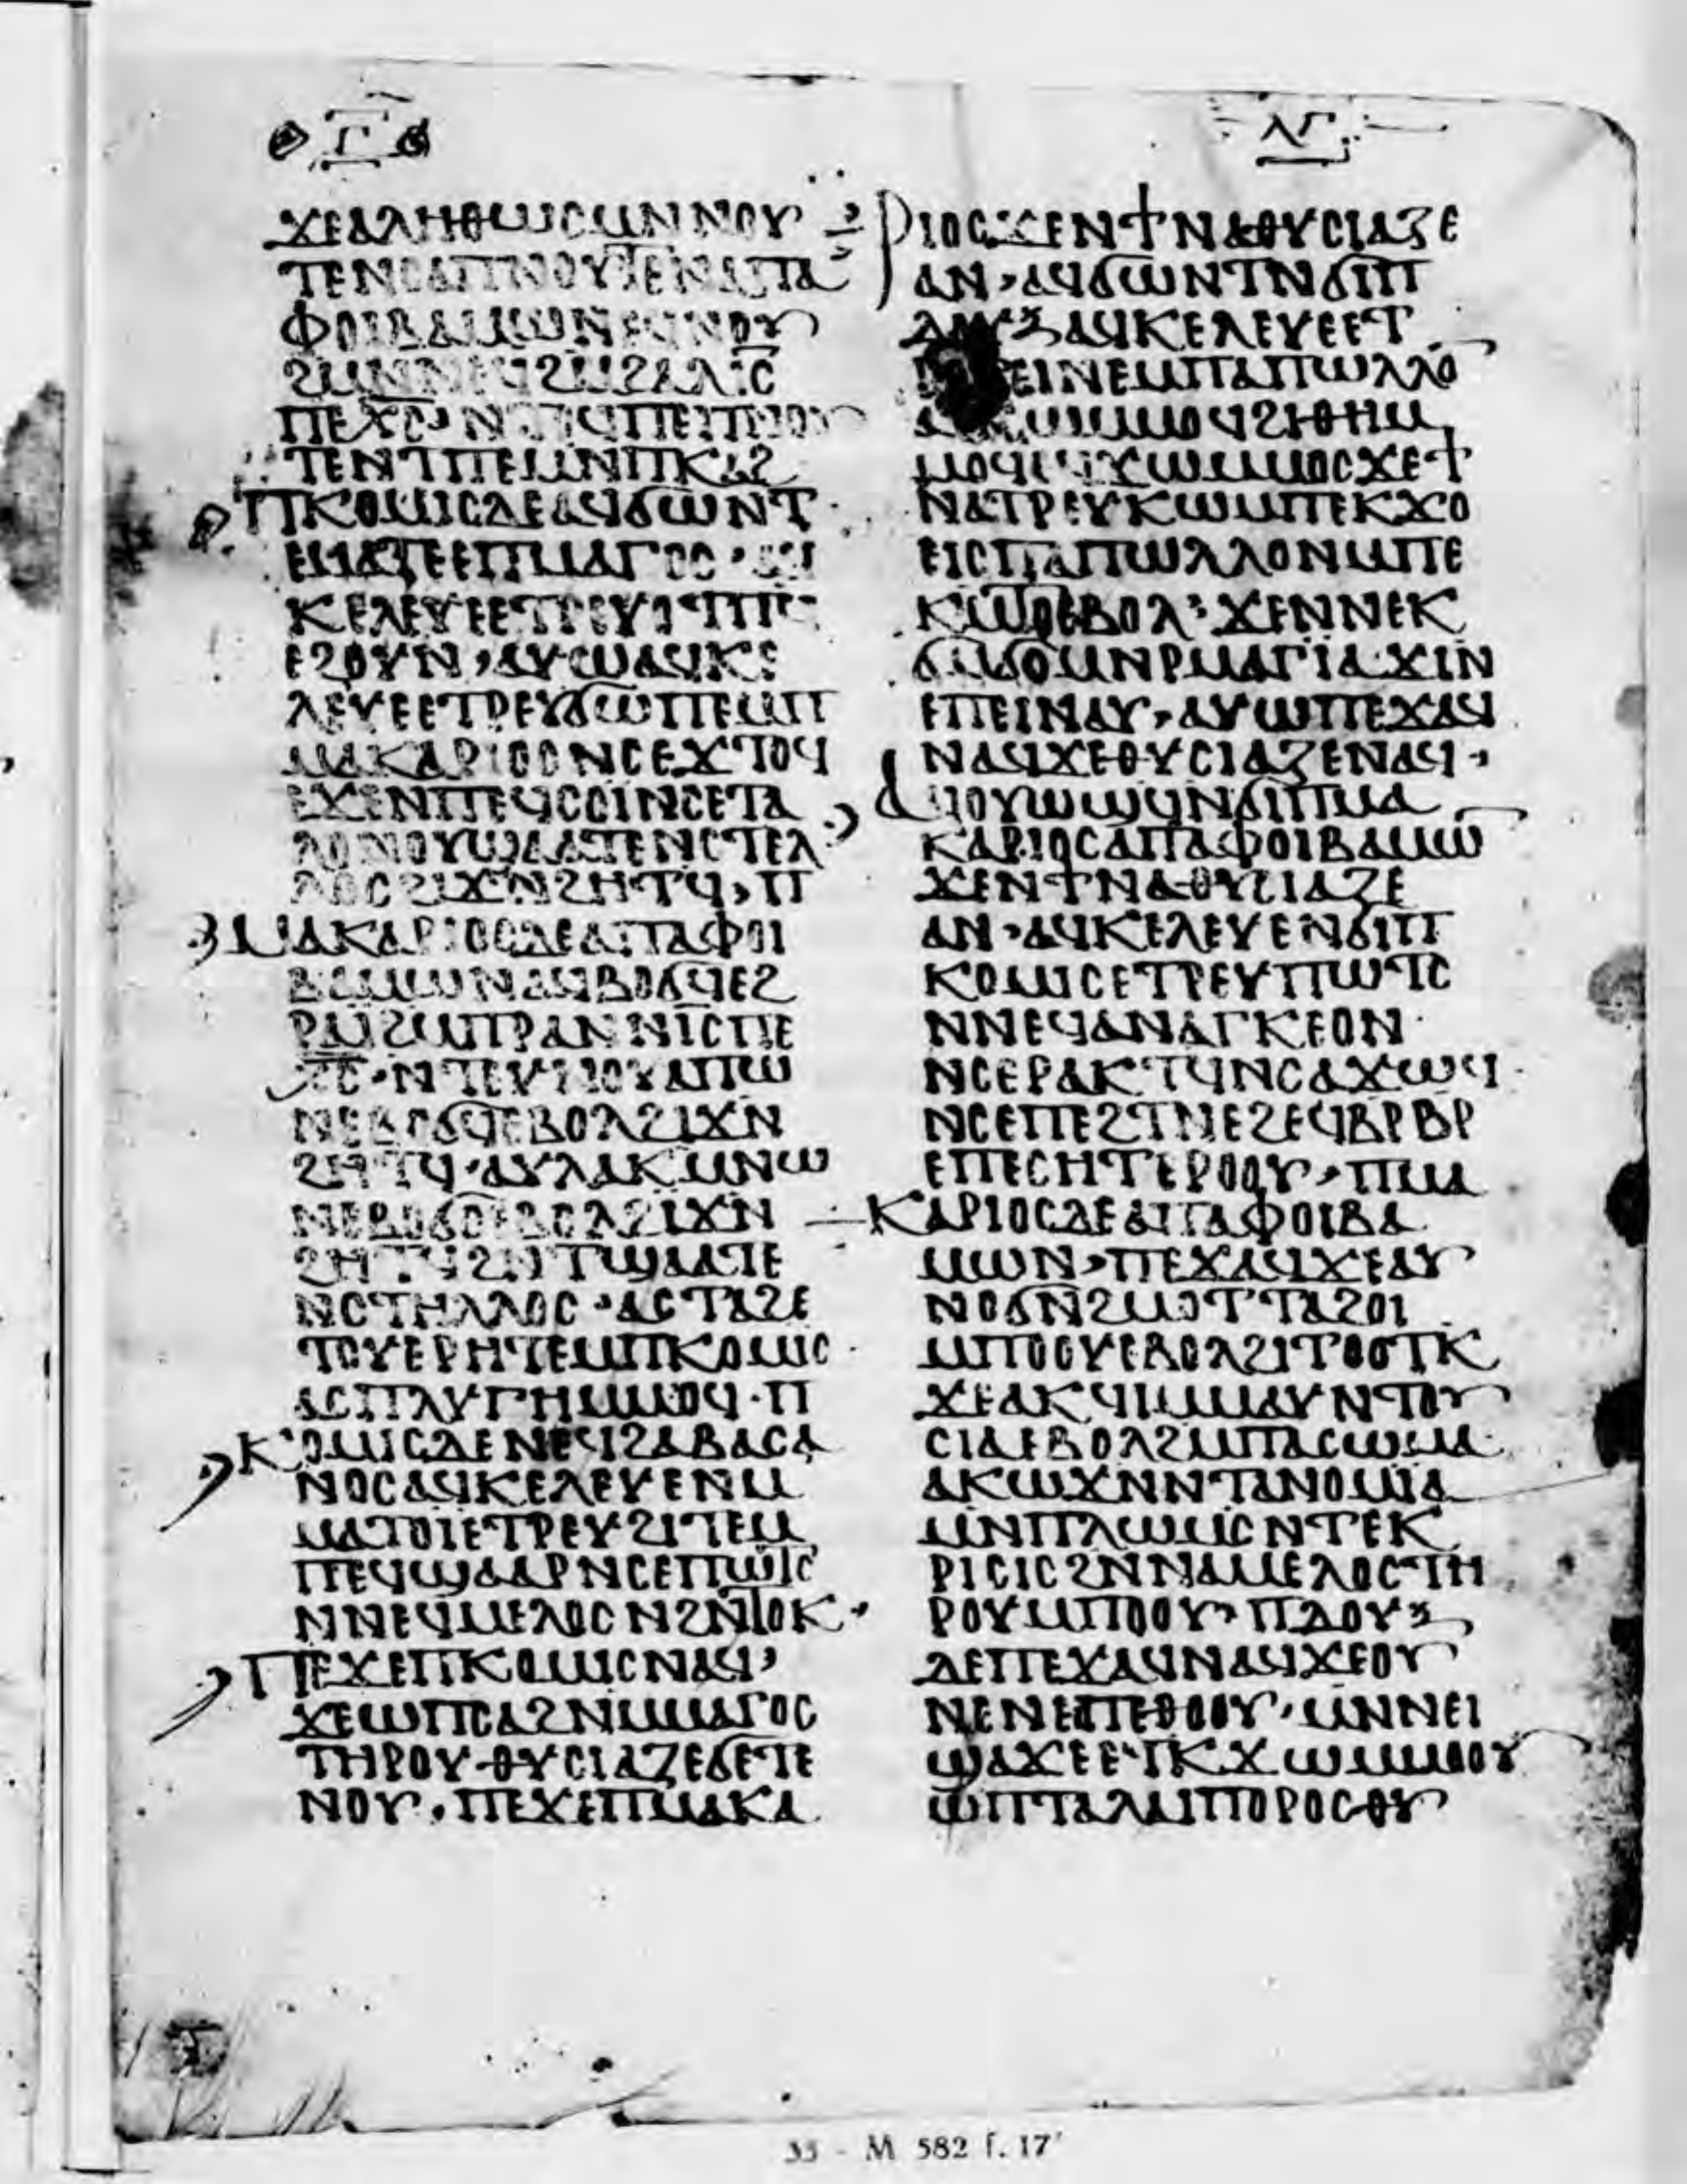 Ⲅ ⲖⲄ
ϪⲈⲀⲖⲎⲐⲰⲤⲘⲚⲚⲞⲨ
ⲦⲈⲚⲤⲀⲠⲚⲞⲨⲦⲈⲚⲀⲠⲀ
ⲪⲞⲒⲂⲀⲘⲰⲚ
ⲠⲈⲬⲤ
ⲦⲈⲚⲦⲠⲈⲘⲚⲠⲔⲀϨ
ⲠⲔⲞⲘⲒⲤⲆⲈⲀϤϬⲰⲚⲦ
ⲈⲘⲀⲦⲈⲈⲠⲘⲀⲄⲞⲤ
ⲔⲈⲖⲈⲨⲈⲈⲦⲢⲈⲨ
ⲈϨⲞⲨⲚ,ⲀⲨⲰⲀϤⲔⲈ
ⲖⲈⲨⲈⲈⲦⲢⲈⲨϬⲰⲠⲈⲘⲠ
ⲘⲀⲔⲀⲢⲒⲞⲤⲚⲤⲈϪⲦⲞϤ
ⲈϪⲈⲚⲠⲈϤⲤⲞⲒⲚⲤⲈⲦⲀ
ⲖⲞⲚⲞⲨϢⲖⲀⲦⲈⲚⲤⲦⲈⲖ
ⲖⲞⲤϨⲒϪⲚϨⲎⲦϤ,Ⲡ
ⲘⲀⲔⲀⲢⲒⲞⲤⲆⲈⲀⲠⲀⲪⲞⲒ
ⲂⲀⲘⲰⲚⲀϤⲂⲞϬϤⲈϨ
ⲢⲀⲒϨⲘⲠⲢⲀⲚⲚⲒⲤⲠⲈ
ⲬⲤ·ⲚⲦⲈⲨⲚⲞⲨⲀⲠⲰ
ⲚⲈⲂⲞϬϤⲈⲂⲞⲖϨⲒϪⲚ
ϨⲎⲦϤ·ⲀⲨⲖⲀⲔⲘⲚⲰ
ⲚⲈⲂⲞϬⲞⲈⲂⲞⲖϨⲒϪⲚ
ϨⲎⲦϤϨⲚⲦϢⲖⲀⲦⲈ
ⲚⲤⲦⲎⲖⲖⲞⲤ·ⲀⲤⲦⲀϨⲈ
ⲦⲞⲨⲈⲢⲎⲦⲈⲘⲠⲔⲞⲘⲒⲤ
ⲀⲤⲠⲖⲨⲄⲎⲘⲘⲞϤ·Ⲡ
ⲔⲞⲘⲒⲤⲆⲈⲚⲈϤϨⲀⲂⲀⲤⲀ
ⲚⲞⲤⲀϤⲔⲈⲖⲈⲨⲈⲚⲘ
ⲘⲀⲦⲞⲒⲈⲦⲢⲈⲨϨⲒⲦⲈⲘ
ⲠⲈϤϢⲀⲀⲢⲚⲤⲈⲠⲰϬⲤ
ⲚⲚⲈϤⲘⲈⲖⲞⲤⲚϨⲚⲦⲞⲔ·
ⲠⲈϪⲈⲠⲔⲞⲘⲒⲤⲚⲀϤ,
ϪⲈⲰⲠⲤⲀϨⲚⲘⲘⲀⲄⲞⲤ
ⲦⲎⲢⲞⲨ·ⲐⲨⲤⲒⲀⲌⲈϬⲈⲦⲈ
ⲚⲞⲨ·ⲠⲈϪⲈⲠⲘⲀⲔⲀ
ⲢⲒⲞⲤϪⲈⲚϮⲚⲀⲐⲨⲤⲒⲀⲌⲈ
ⲀⲚ,ⲀϤϬⲰⲚⲦⲚϬⲒⲠ
ⲀϤⲔⲈⲖⲈⲨⲈⲈⲦ
ⲈⲒⲚⲈⲘⲠⲀⲠⲰⲖⲖⲞ
ⲘⲘⲞϤϨⲒⲐⲎⲘ
ⲘⲞϤⲈϤϪⲰⲘⲘⲞⲤϪⲈϮ
ⲚⲀⲦⲢⲈⲨⲔⲰⲘⲠⲈⲔϪⲞ
ⲈⲒⲤⲠⲀⲠⲰⲖⲖⲞⲚⲘⲠⲈ
ⲔⲘⲦⲞⲈⲂⲞⲖ·ϪⲈⲚⲚⲈⲔ
ϬⲘϬⲞⲘⲚⲢⲘⲀⲄⲒⲀ·ϪⲒⲚ
ⲈⲠⲈⲒⲚⲀⲨ,ⲀⲨⲰⲠⲈϪⲀϤ
ⲚⲀϤϪⲈⲐⲨⲤⲒⲀⲌⲈⲚⲀϤ·
ⲀϤⲞⲨⲰϢϤⲚϬⲒⲠⲘⲀ
ⲔⲀⲢⲒⲞⲤⲀⲠⲀⲪⲞⲒⲂⲀⲘⲰ
ϪⲈⲚϮⲚⲀⲐⲨⲤⲒⲀⲌⲈ
ⲀⲚ·ⲀϤⲔⲈⲖⲈⲨⲈⲚϬⲒⲠ
ⲔⲞⲘⲒⲤⲈⲦⲢⲈⲨⲠⲰϬⲤ
ⲚⲚⲈϤⲀⲚⲀⲄⲔⲈⲞⲚ·
ⲚⲤⲈⲢⲀⲔⲦϤⲚⲤⲀϪⲰϤ·
ⲚⲤⲈⲠⲈϨⲦⲚⲈϨⲈϤⲂⲢⲂⲢ
ⲈⲠⲈⲤⲎⲦⲈⲢⲞⲞⲨ,ⲠⲘⲀ
ⲔⲀⲢⲒⲞⲤⲆⲈⲀⲠⲀⲪⲞⲒⲂⲀ
ⲘⲰⲚ,ⲠⲈϪⲀϤϪⲈⲀⲨ
ⲚⲞϬⲚϨⲘⲞⲦⲦⲀϨⲞⲒ
ⲘⲠⲞⲞⲨⲈⲂⲞⲖϨⲒⲦⲞⲞⲦⲔ
ϪⲈⲀⲔϤⲒⲘⲘⲀⲨⲚⲦⲞⲨ
ⲤⲒⲀⲈⲂⲞⲖϨⲘⲠⲀⲤⲰⲘⲀ·
ⲀⲔⲰϪⲚⲚⲦⲀⲚⲞⲘⲒⲀ
ⲘⲚⲠⲖⲰⲘⲤⲚⲦⲈⲔ
ⲢⲒⲤⲒⲤϨⲚⲚⲀⲘⲈⲖⲞⲤⲦⲎ
ⲢⲞⲨⲘⲠⲞⲞⲨ,ⲠⲆⲞⲨⲜ
ⲆⲈⲠⲈϪⲀϤⲚⲀϤϪⲈⲞⲨ
ⲚⲈⲚⲈⲠⲈⲐⲞⲞⲨ·ⲘⲚⲚⲈⲒ
ϢⲀϪⲈⲈⲦⲔϪⲰⲘⲘⲞⲞⲨ
ⲰⲠⲦⲀⲖⲀⲒⲠⲞⲢⲞⲤ·ⲐⲨ
33 - M 582 f. 17ᵛ